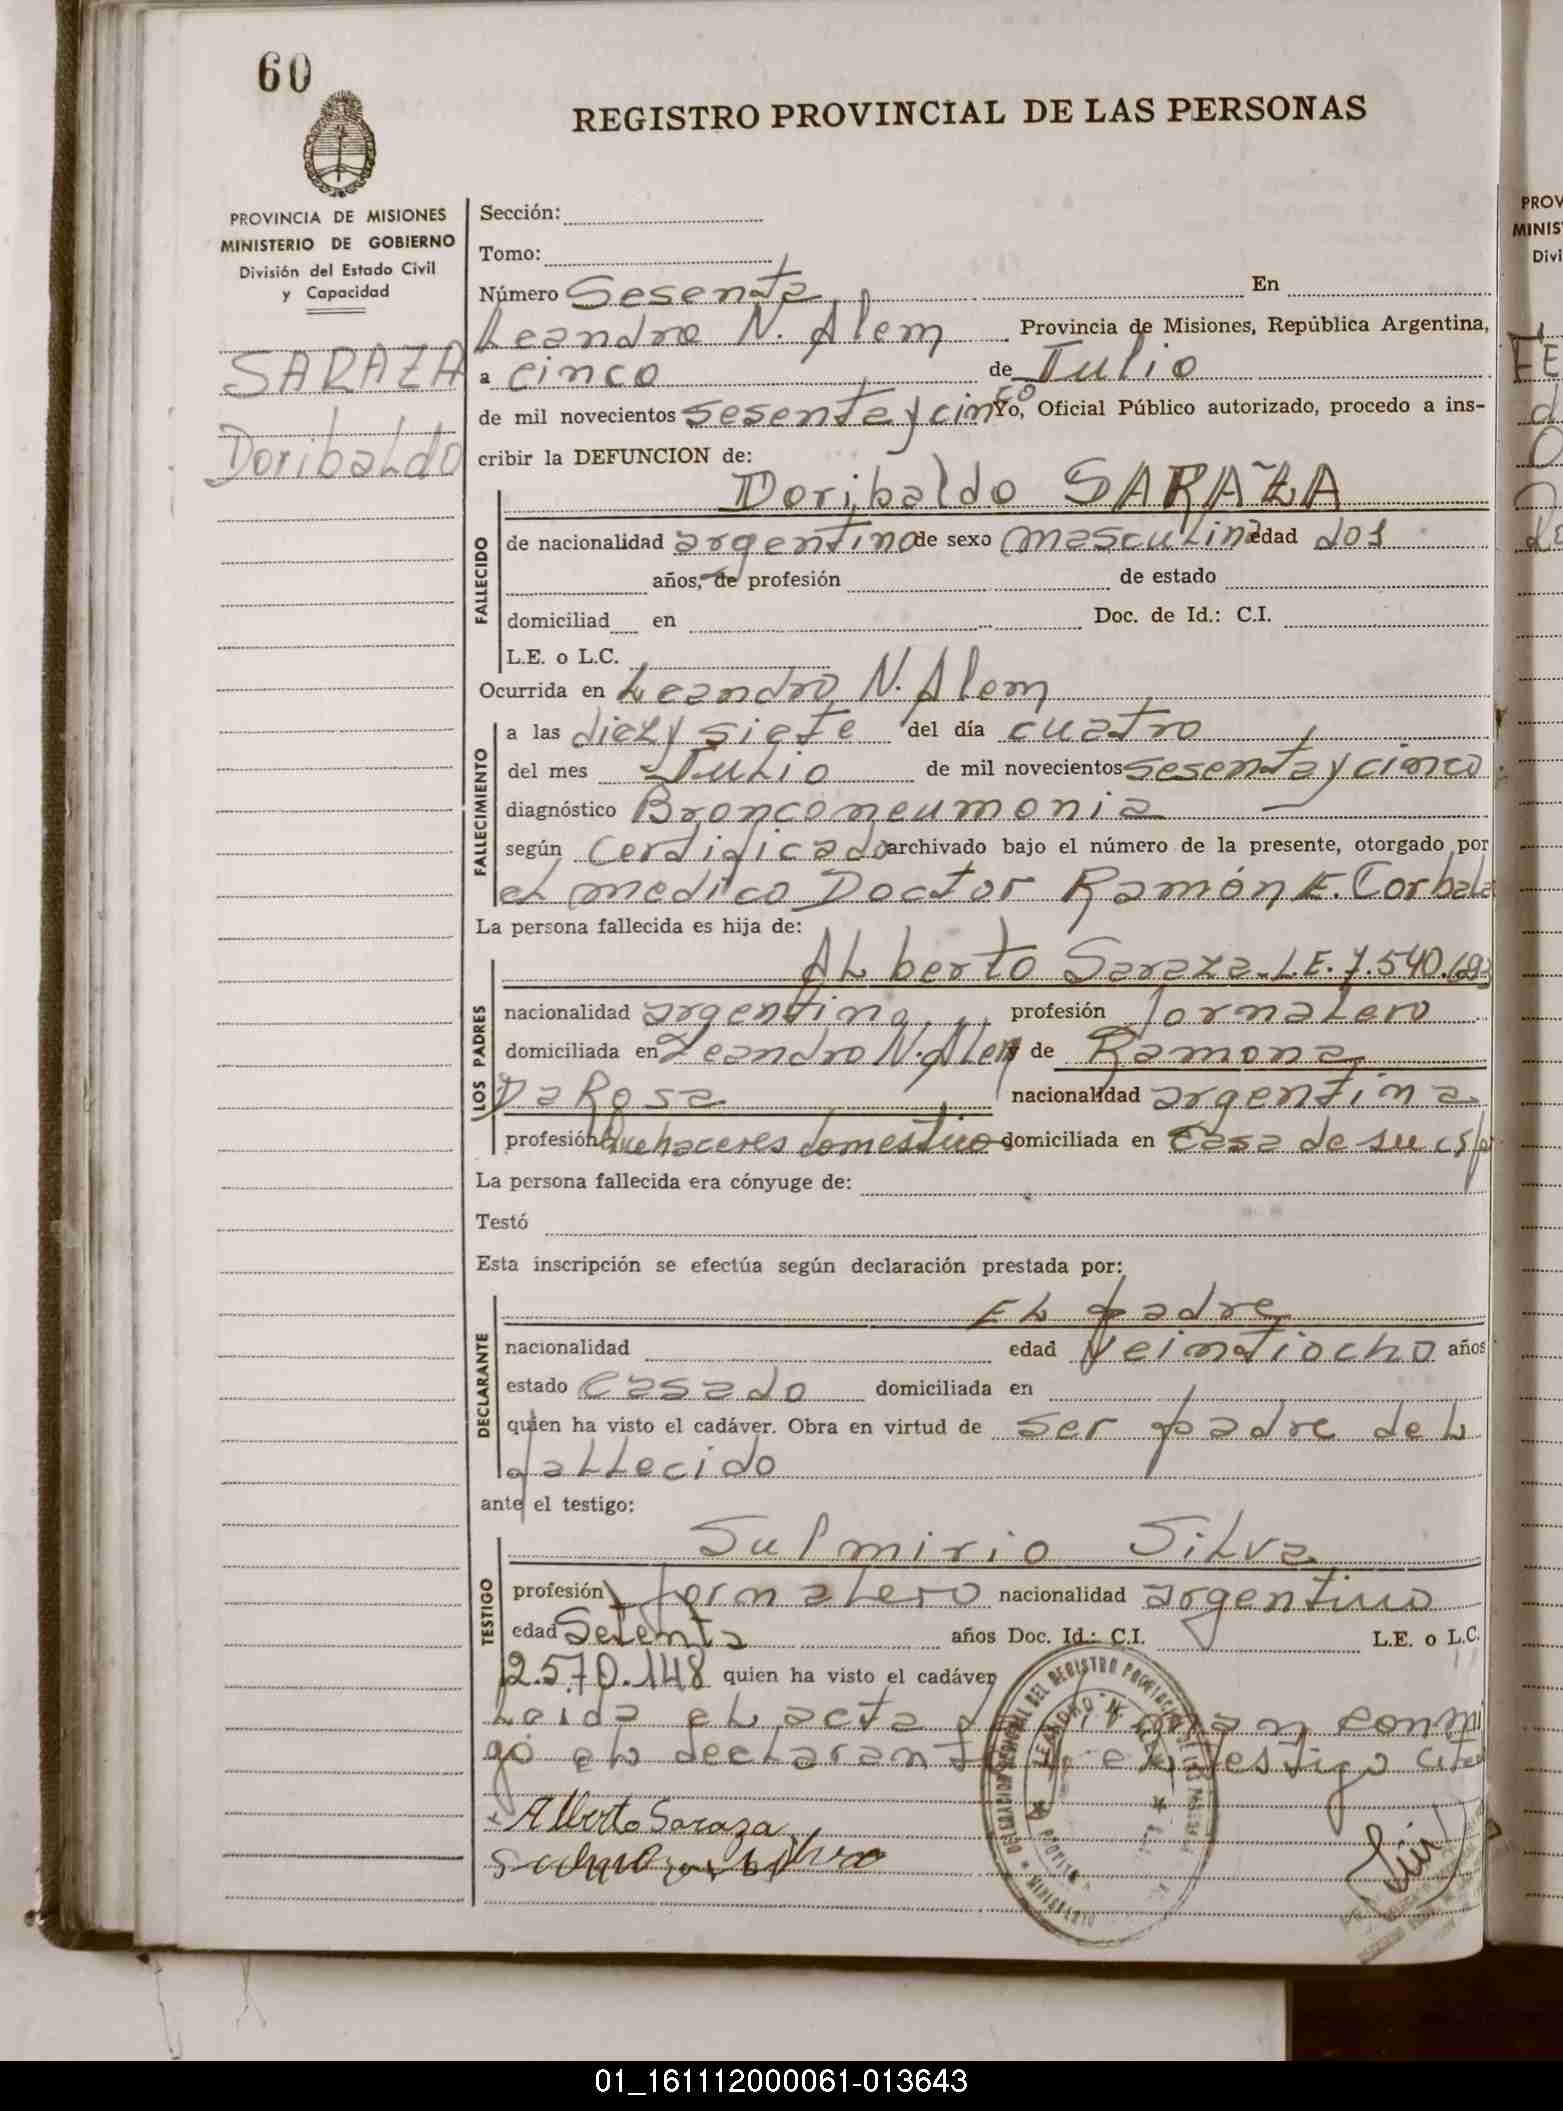 60
REGISTRO PROVINCIAL DE LAS PERSONAS
PROVINCIA DE MISIONES
MINISTERIO DE GOBIERNO
División del Estado Civil
y Capacidad
SARAZA
Doribaldo
Sección:
Tomo:
Número Sesenta En
Leandro N. Alem Provincia de Misiones, República Argentina,
a cinco de Julio
de mil novecientos sesenta y cinco Yo, Oficial Público autorizado, procedo a ins-
cribir la DEFUNCION de:
Doribaldo SARAZA
FALLECIDO
de nacionalidad argentino de sexo masculino edad dos
años, de profesión de estado
domiciliad en Doc. de Id.: C.I.
L.E. o L.C.
Ocurrida en Leandro N. Alem
FALLECIMIENTO
a las diez y siete del día cuatro
del mes Julio de mil novecientos sesenta y cinco
diagnóstico Bronconeumonia
según Cerdificado archivado bajo el número de la presente, otorgado por
el medico Doctor Ramón E. Corbala
La persona fallecida es hija de:
LOS PADRES
Alberto Saraza. L.E. 7.540.693
nacionalidad argentina profesión Jornalero
domiciliada en Leandro N. Alem y de Ramona
Da Rosa nacionalidad argentina
profesión Quehaceres domestico domiciliada en Casa de su esp
La persona fallecida era cónyuge de:
Testó
Esta inscripción se efectúa según declaración prestada por:
DECLARANTE
El padre
nacionalidad edad Veintiocho años
estado Casado domiciliada en
quien ha visto el cadáver. Obra en virtud de ser padre del
fallecido
ante el testigo:
TESTIGO
Sulmirio Silva
profesión Jornalero nacionalidad argentino
edad Setenta años Doc. Id.: C.I. L.E. o L.C.
2.570.148 quien ha visto el cadáver
Leida el acta firman conmi
go el declarante el testigo cited
Alberto Saraza
Silva
DELEGACION DEL REGISTRO PROVINCIAL DE LAS PERSONAS
LEANDRO N. ALEM
MINISTERIO
PROV
MINIS
Divi
01_161112000061-013643